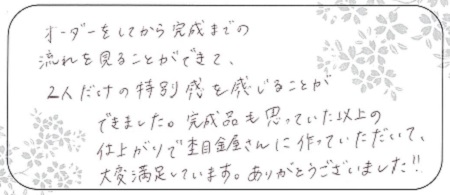 オーダーをしてから完成までの
流れを見ることができて、
2人だけの特別感を感じることが
できました。完成品も思っていた以上の
仕上がりで杢目金屋さんに作っていただいて、
大変満足しています。ありがとうございました!!